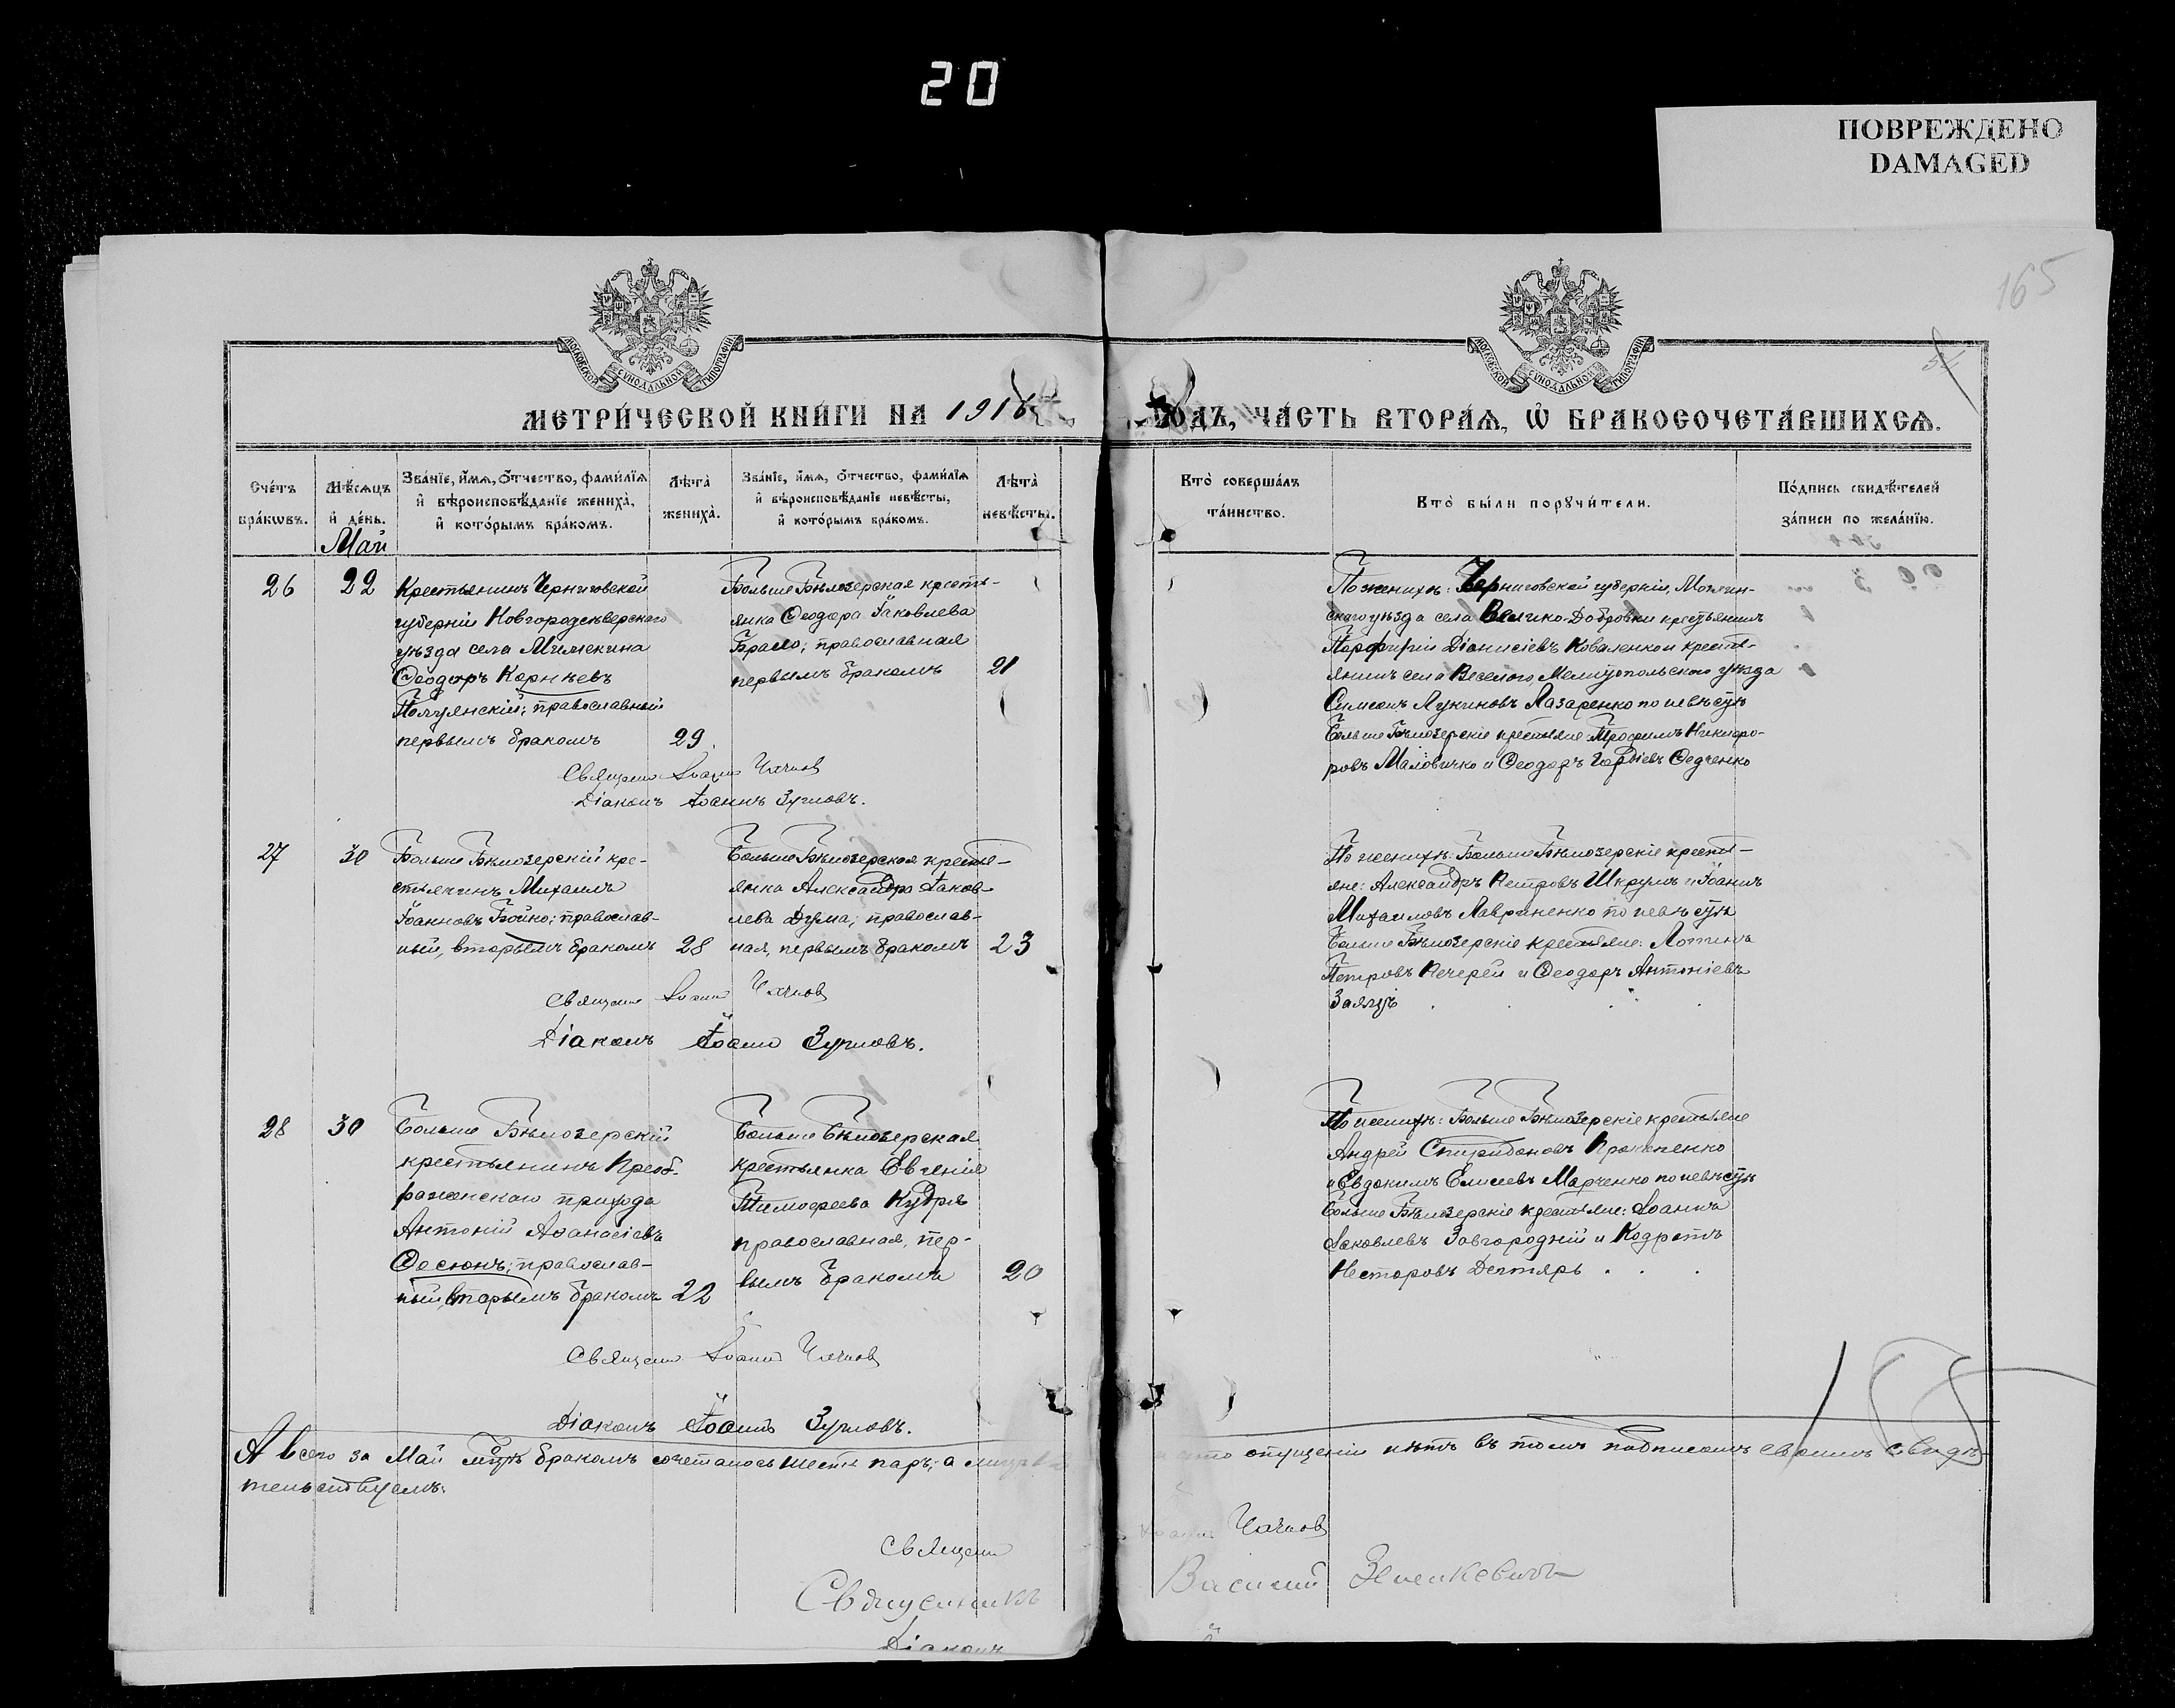 20
ПОВРЕЖДЕНО
DAMAGED
165
МОСКОВСКОЙ СѴНОДАЛЬНОЙ ТИПОГРАФІИ
МОСКОВСКОЙ СѴНОДАЛЬНОЙ ТИПОГРАФІИ
МЕТРИ́ЧЕСКОЙ КНИ́ГИ НА 1916
ГОДЪ, ЧА́СТЬ ВТОРА́Ѧ, Ѽ БРАКОСОЧЕТА́ВШИХСѦ.
Сче́тъ
бра́кѡвъ.
Мѣ́сѧцъ
и҆ де́нь.
Зва́нїе, и҆́мѧ, ѻ҆́тчество, фами́лїѧ
и҆ вѣроисповѣ́данїе жениха̀,
и҆ кото́рымъ бра́комъ.
Лѣ́та̀
жениха̀.
Зва́нїе, и҆́мѧ, ѻ҆́тчество, фами́лїѧ
и҆ вѣроисповѣ́данїе невѣ́сты,
и҆ кото́рымъ бра́комъ.
Лѣ́та̀
невѣ́сты.
Кто̀ соверша́лъ
та́инство.
Кто̀ бы́ли порꙋчи́тели.
По́дпись свидѣ́телей
за́писи по жела́нїю.
Май
26
22
Крестьянинъ Черниговской
губерніи Новгородсѣверскаго
уѣзда села
Ѳеодоръ Корнѣевъ
православный
первымъ бракомъ
29
Больше Бѣлозерская кресть-
янка Ѳеодора Іаковлева
православная
первымъ бракомъ
21
По женихѣ: Черниговской губерніи,
скаго уѣзда села Велико-Добровки крестьянинъ
Порфирій Діонисіевъ Коваленко и кресть-
янинъ села Веселого Мелитопольскаго уѣзда
Симеонъ Лукиновъ Лазаренко по невѣстѣ
Больше Бѣлозерскіе крестьяне: Трофимъ Никифо-
ровъ Маловичко и Ѳеодоръ Гордіевъ Федченко
Священн Іоаннъ
Діаконъ Іоаннъ
27
30
Больше Бѣлозерскій кре-
стьянинъ Михаилъ
Іоанновъ Бойко; православ-
ный, вторымъ бракомъ
28
Больше Бѣлозерская кресть-
янка Александра Іаков-
лева Дума; православ-
ная, первымъ бракомъ
23
По женихѣ: Больше Бѣлозерскіе кресть-
яне: Александръ Петровъ Шкрумъ и Іоаннъ
Михаиловъ Лавриненко по невѣстѣ
Больше Бѣлозерскіе крестьяне: Логинъ
Петровъ Кечерей и Ѳеодоръ Антоніевъ
Заяцъ
Священн Іоаннъ
Діаконъ Іоаннъ
28
30
Больше Бѣлозерскій
крестьянинъ Преоб-
раженскаго прихода
Антоній Аѳанасіевъ
Ѳесюнъ; православ-
ный, вторымъ бракомъ
22
Больше Бѣлозерская
крестьянка Евгенія
Тимоѳеева Кудря
православная, пер-
вымъ бракомъ
20
По женихѣ: Больше Бѣлозерскіе крестьяне
Андрей Спиридоновъ Прокопенко
и Евдокимъ Елисеевъ Марченко по невѣстѣ
Больше Бѣлозерскіе крестьяне: Іоаннъ
Іаковлевъ Завгородній и Кодратъ
Несторовъ Дегтярь
Священн Іоаннъ
Діаконъ Іоаннъ
А всего за Май м-цъ бракомъ сочеталось шесть паръ; а
что опущеній нѣтъ въ томъ подписомъ своимъ свидѣ-
тельствуемъ:
Священн Іоаннъ
Священникъ Василій Зеленкевичъ
Діаконъ